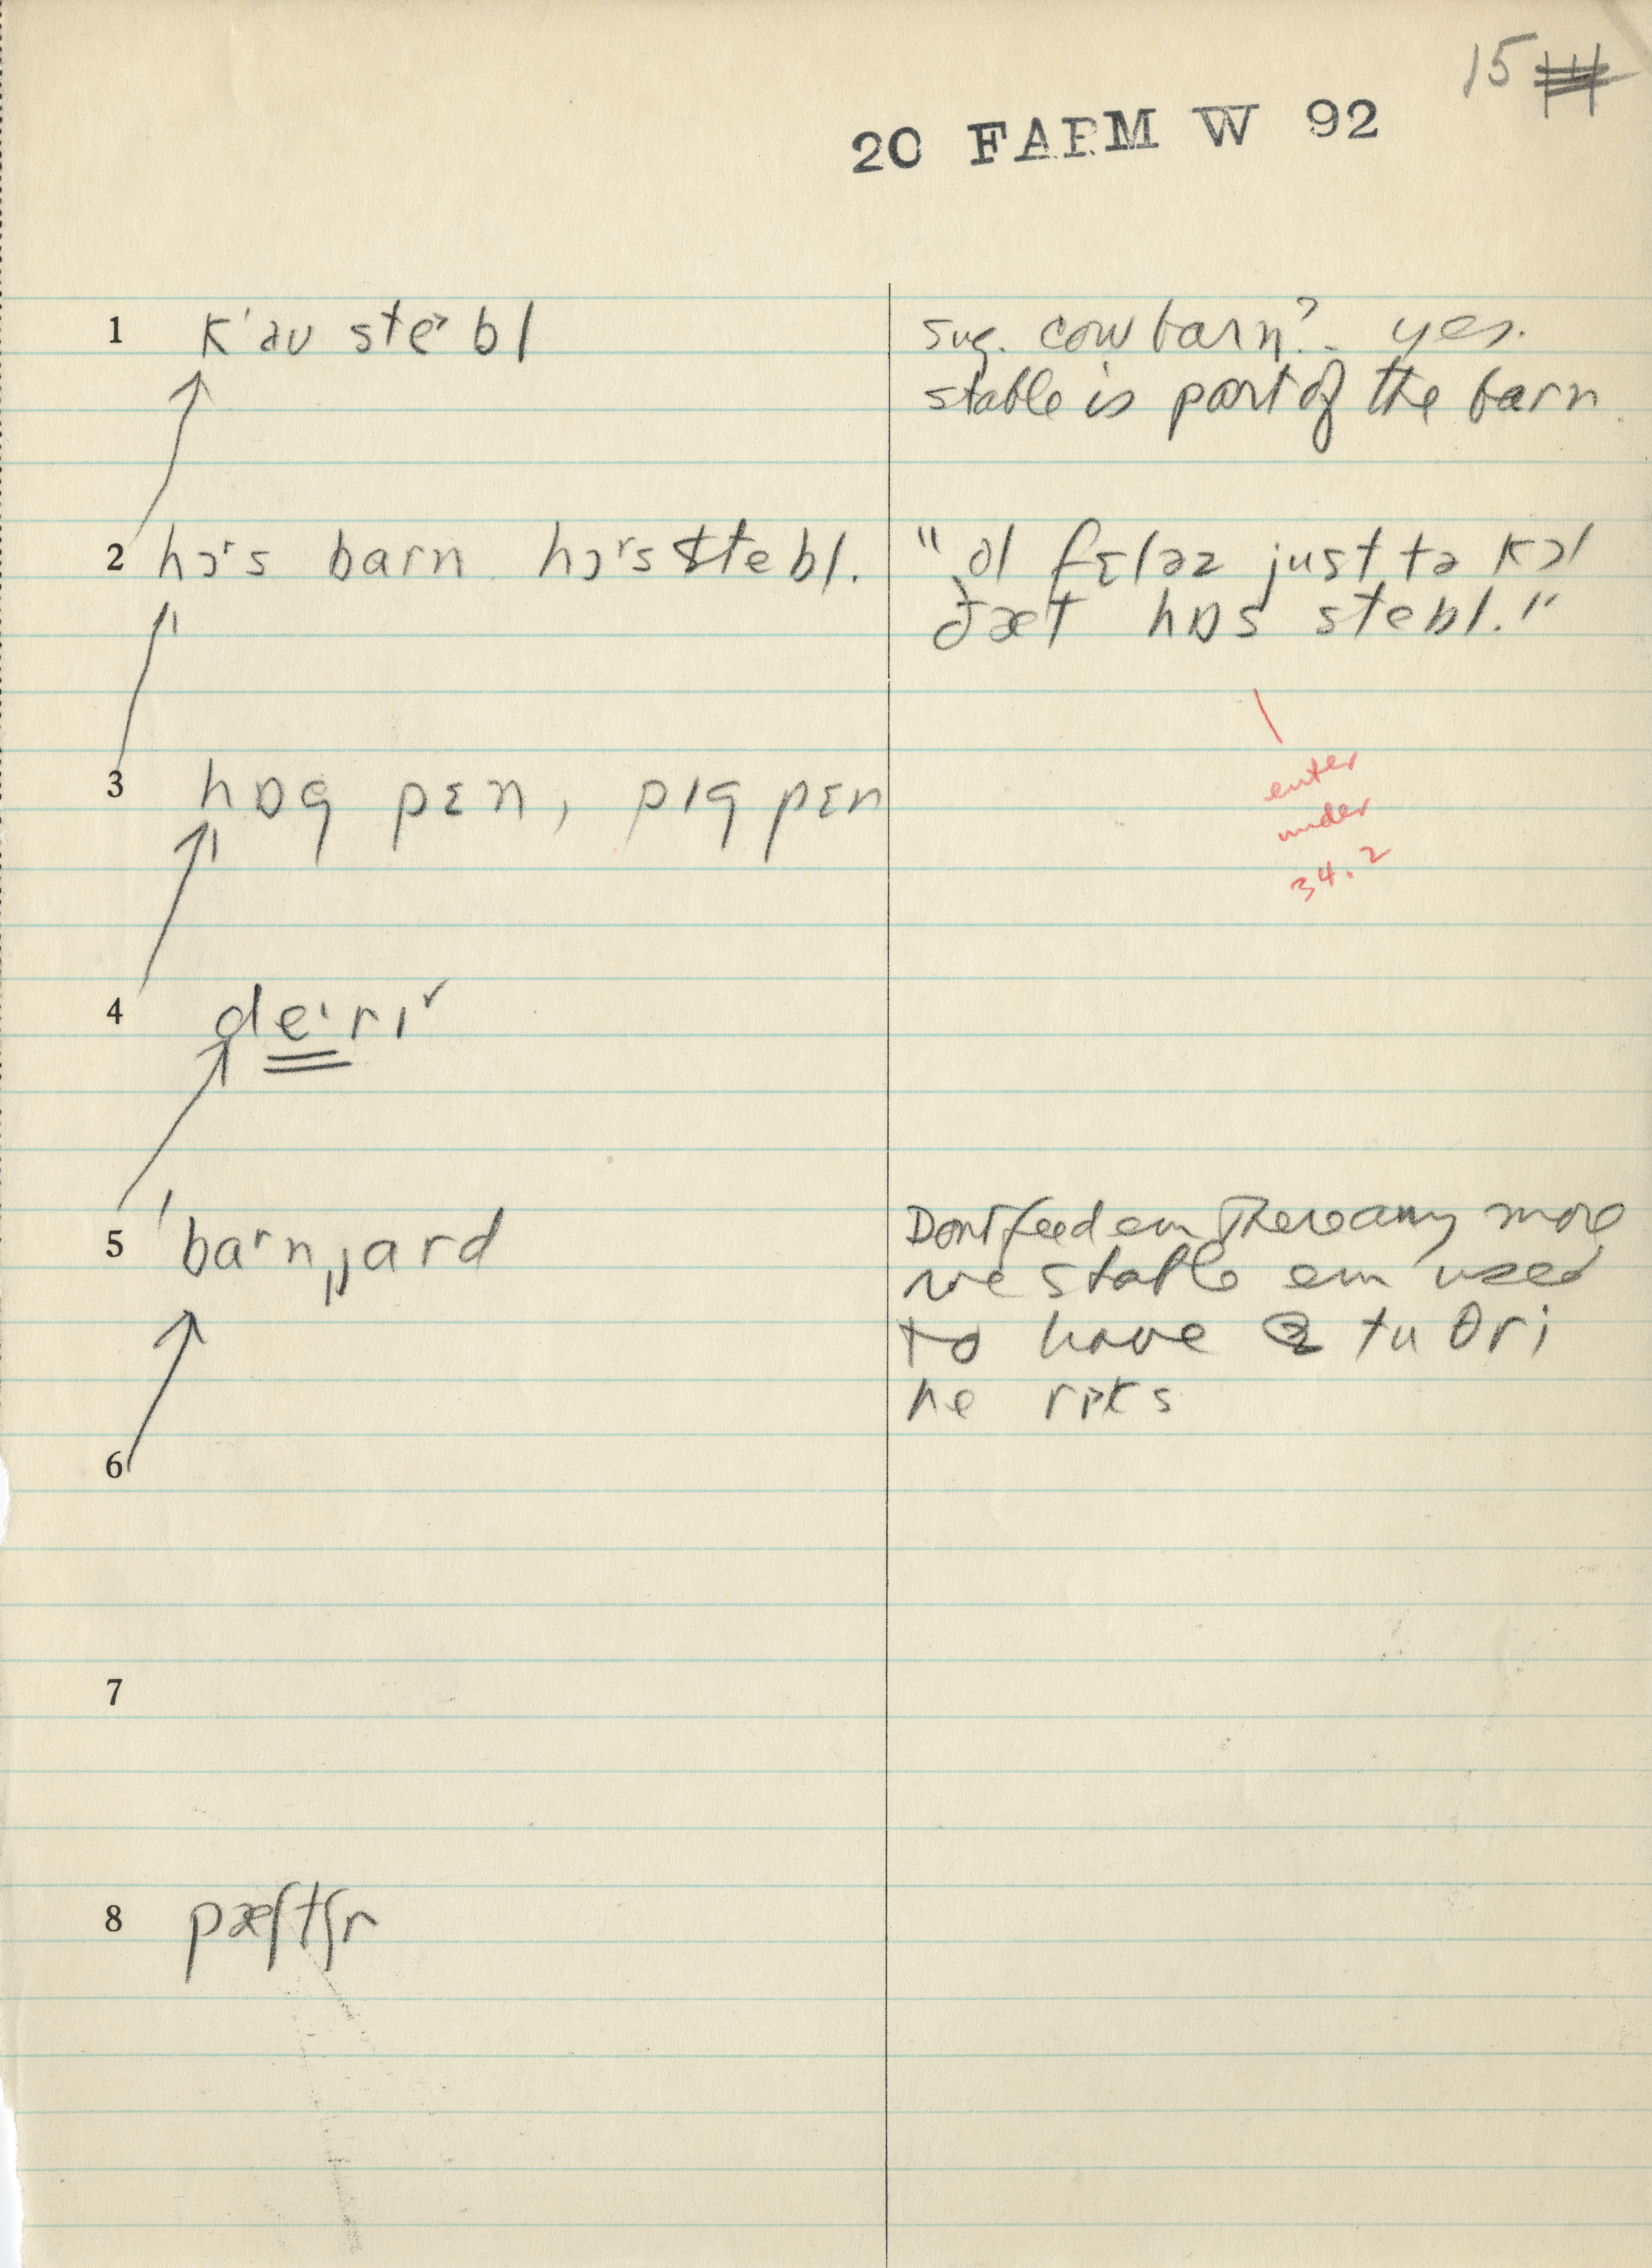 15
20 FARM W 92
1 k'əu stebl
sug. cow barn? - yes.
stable is part of the barn
2 hɔrs barn hɔrs stebl.
"ol fɛləz just tə kɔl
ðæt hɒs stebl."
enter
under
34.2
3 hɒg pɛn, pɪg pɛn
4 deɪrɪ˅
5 ˈbarnˌjard
Dont feed em there any more
we stable em used
to have tu θri
he rɪks
6
7
8 pæʃtʃr